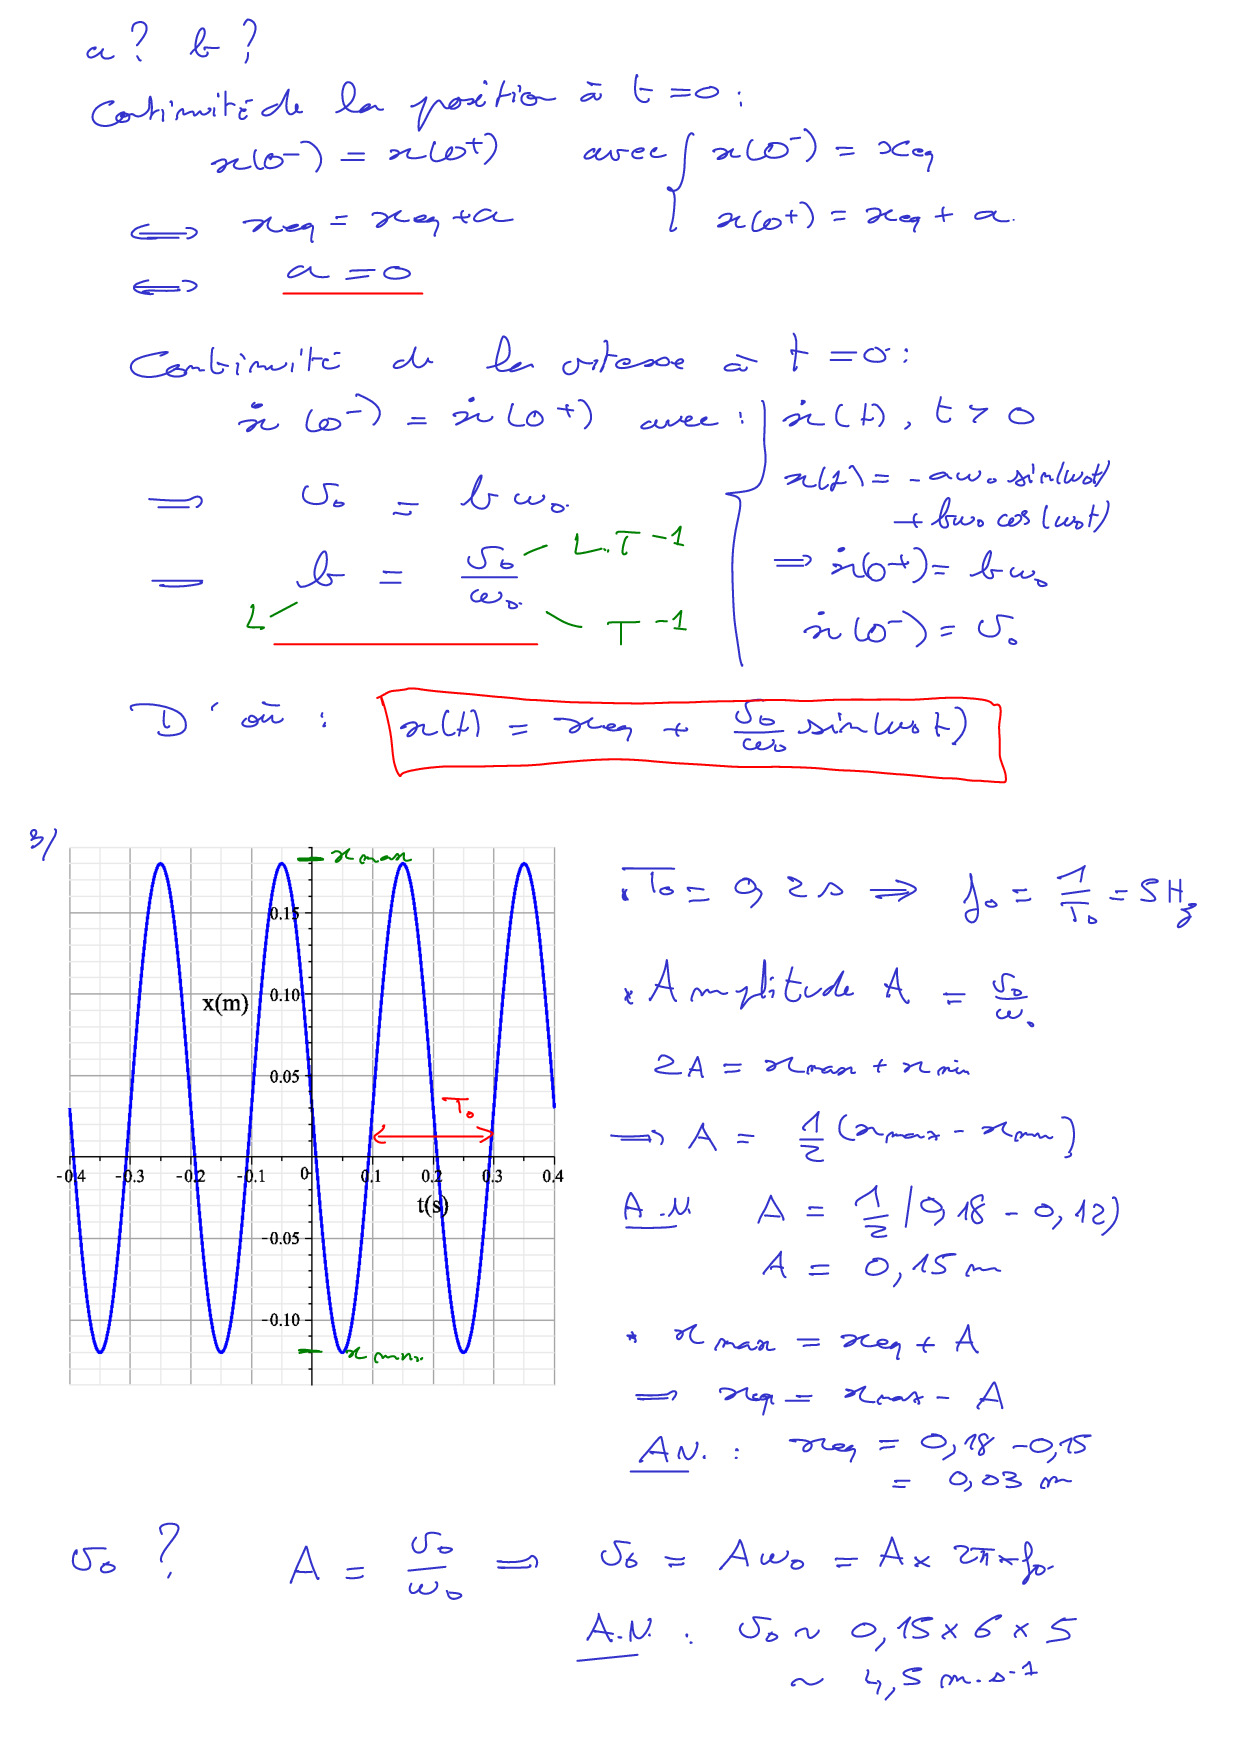 a ? b ?
Continuité de la position à t = 0 :
x(0⁻) = x(0⁺) avec { x(0⁻) = xeq
x(0⁺) = xeq + a.
⟺ xeq = xeq + a
⟺ a = 0
Continuité de la vitesse à t = 0 :
ẋ(0⁻) = ẋ(0⁺) avec : { ẋ(t), t > 0
x(t) = - aω₀ sin(ω₀t)
+ bω₀ cos(ω₀t)
⟹ ẋ(0⁺) = bω₀
ẋ(0⁻) = v₀
⟹ v₀ = b ω₀.
= b = v₀/ω₀.
L L.T⁻¹ T⁻¹
D'où : x(t) = xeq + v₀/ω₀ sin(ω₀t)
3/
x max
0.15
0.10
x(m)
0.05
T₀
-0.4 -0.3 -0.2 -0.1 0 0.1 0.2 0.3 0.4
t(s)
-0.05
-0.10
x min.
. T₀ = 0,2 s ⟹ f₀ = 1/T₀ = 5 Hz
* Amplitude A = v₀/ω.
2A = xmax + xmin
⟹ A = 1/2 (xmax - xmin)
A.N. A = 1/2 (0,18 - 0,12)
A = 0,15 m
* xmax = xeq + A
⟹ xeq = xmax - A
AN. : xeq = 0,18 - 0,15
= 0,03 m
v₀ ? A = v₀/ω₀ ⟹ v₀ = Aω₀ = A × 2π × f₀.
A.N. : v₀ ~ 0,15 × 6 × 5
~ 4,5 m.s⁻¹